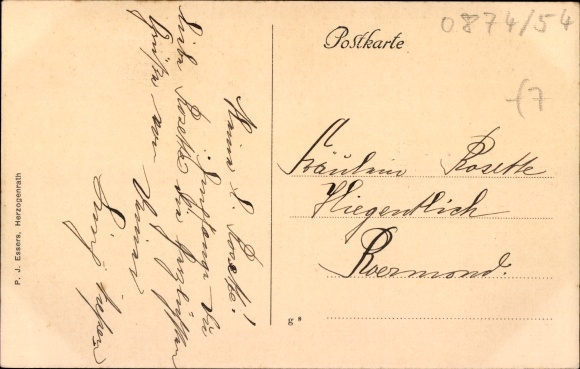 Postkarte
0874/54
f7
Meine l. Rosette!
Empfange du
liebe Rosette die herzlichsten
Grüße von
Deiner
Fräulein Rosette
Hiegentlich
Roermond.
P. J. Essers, Herzogenrath
g *